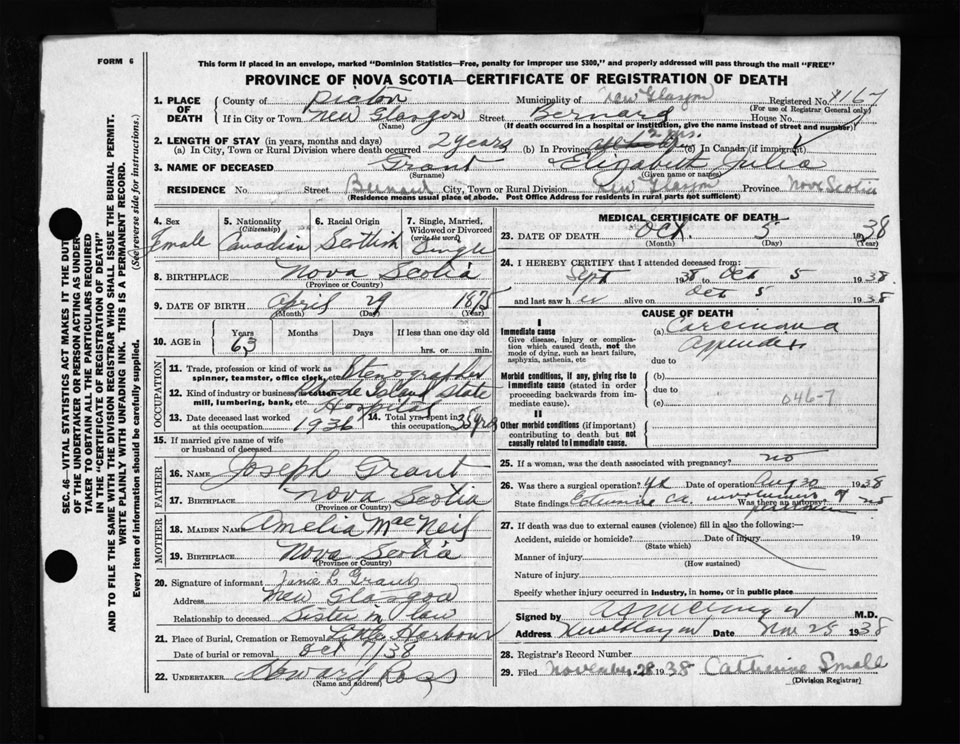 FORM 6
This form if placed in an envelope, marked "Dominion Statistics—Free, penalty for improper use $300," and properly addressed will pass through the mail "FREE"
PROVINCE OF NOVA SCOTIA—CERTIFICATE OF REGISTRATION OF DEATH
SEC. 46—VITAL STATISTICS ACT MAKES IT THE DUTY
OF THE UNDERTAKER OR PERSON ACTING AS UNDER-
TAKER TO OBTAIN ALL THE PARTICULARS REQUIRED
IN THE "CERTIFICATE OF REGISTRATION OF DEATH"
AND TO FILE THE SAME WITH THE DIVISION REGISTRAR WHO SHALL ISSUE THE BURIAL PERMIT.
WRITE PLAINLY WITH UNFADING INK. THIS IS A PERMANENT RECORD.
Every item of information should be carefully supplied. (See reverse side for instructions.)
1. PLACE OF DEATH County of Pictou Municipality of New Glasgow Registered No.
(For use of Registrar General only)
If in City or Town New Glasgow Street Bernard House No.
(Name) (If death occurred in a hospital or institution, give the name instead of street and number)
2. LENGTH OF STAY (in years, months and days)
(a) In City, Town or Rural Division where death occurred 2 years (b) In Province (c) In Canada (if immigrant)
3. NAME OF DECEASED Grant Elizabeth Julia
(Surname) (Given name or names)
RESIDENCE No. Street Bernard City, Town or Rural Division New Glasgow Province Nova Scotia
(Residence means usual place of abode. Post Office Address for residents in rural parts not sufficient)
4. Sex Female
5. Nationality (Citizenship) Canadian
6. Racial Origin Scottish
7. Single, Married, Widowed or Divorced (write the word) Single
8. BIRTHPLACE Nova Scotia
(Province or Country)
9. DATE OF BIRTH April 29 1875
(Month) (Day) (Year)
10. AGE in Years Months Days If less than one day old
63 hrs. or min.
OCCUPATION
11. Trade, profession or kind of work as
spinner, teamster, office clerk, etc. Stenographer
12. Kind of industry or business, as cotton
mill, lumbering, bank, etc. Rhode Island State Hospital
13. Date deceased last worked
at this occupation 1936
14. Total yrs. spent in
this occupation 35 yrs
15. If married give name of wife
or husband of deceased
FATHER
16. NAME Joseph Grant
17. BIRTHPLACE Nova Scotia
(Province or Country)
MOTHER
18. MAIDEN NAME Amelia MacNeil
19. BIRTHPLACE Nova Scotia
(Province or Country)
20. Signature of informant Janie L Grant
Address New Glasgow
Relationship to deceased Sister in law
21. Place of Burial, Cremation or Removal Little Harbour
Date of burial or removal Oct 7/38
22. UNDERTAKER Howard Ross
(Name and address)
MEDICAL CERTIFICATE OF DEATH
23. DATE OF DEATH Oct. 5 1938
(Month) (Day) (Year)
24. I HEREBY CERTIFY that I attended deceased from:
Sept 1938 to Oct 5 1938
and last saw her alive on Oct 5 1938
CAUSE OF DEATH
I
Immediate cause
Give disease, injury or complica-
tion which caused death, not the
mode of dying, such as heart failure,
asphyxia, asthenia, etc
(a) Carcinoma
Appendix
due to
Morbid conditions, if any, giving rise to
immediate cause (stated in order
proceeding backwards from im-
mediate cause).
(b)
due to
(c) 046-7
II
Other morbid conditions (if important)
contributing to death but not
causally related to immediate cause.
25. If a woman, was the death associated with pregnancy? no
26. Was there a surgical operation? Date of operation Aug 30 1938
State findings Was there an autopsy? no
27. If death was due to external causes (violence) fill in also the following:—
Accident, suicide or homicide? Date of injury 19
(State which)
Manner of injury
(How sustained)
Nature of injury
Specify whether injury occurred in industry, in home, or in public place
Signed by M.D.
Address New Glasgow Date Nov 28 1938
28. Registrar's Record Number
29. Filed November 28 1938 Catherine Small
(Division Registrar)